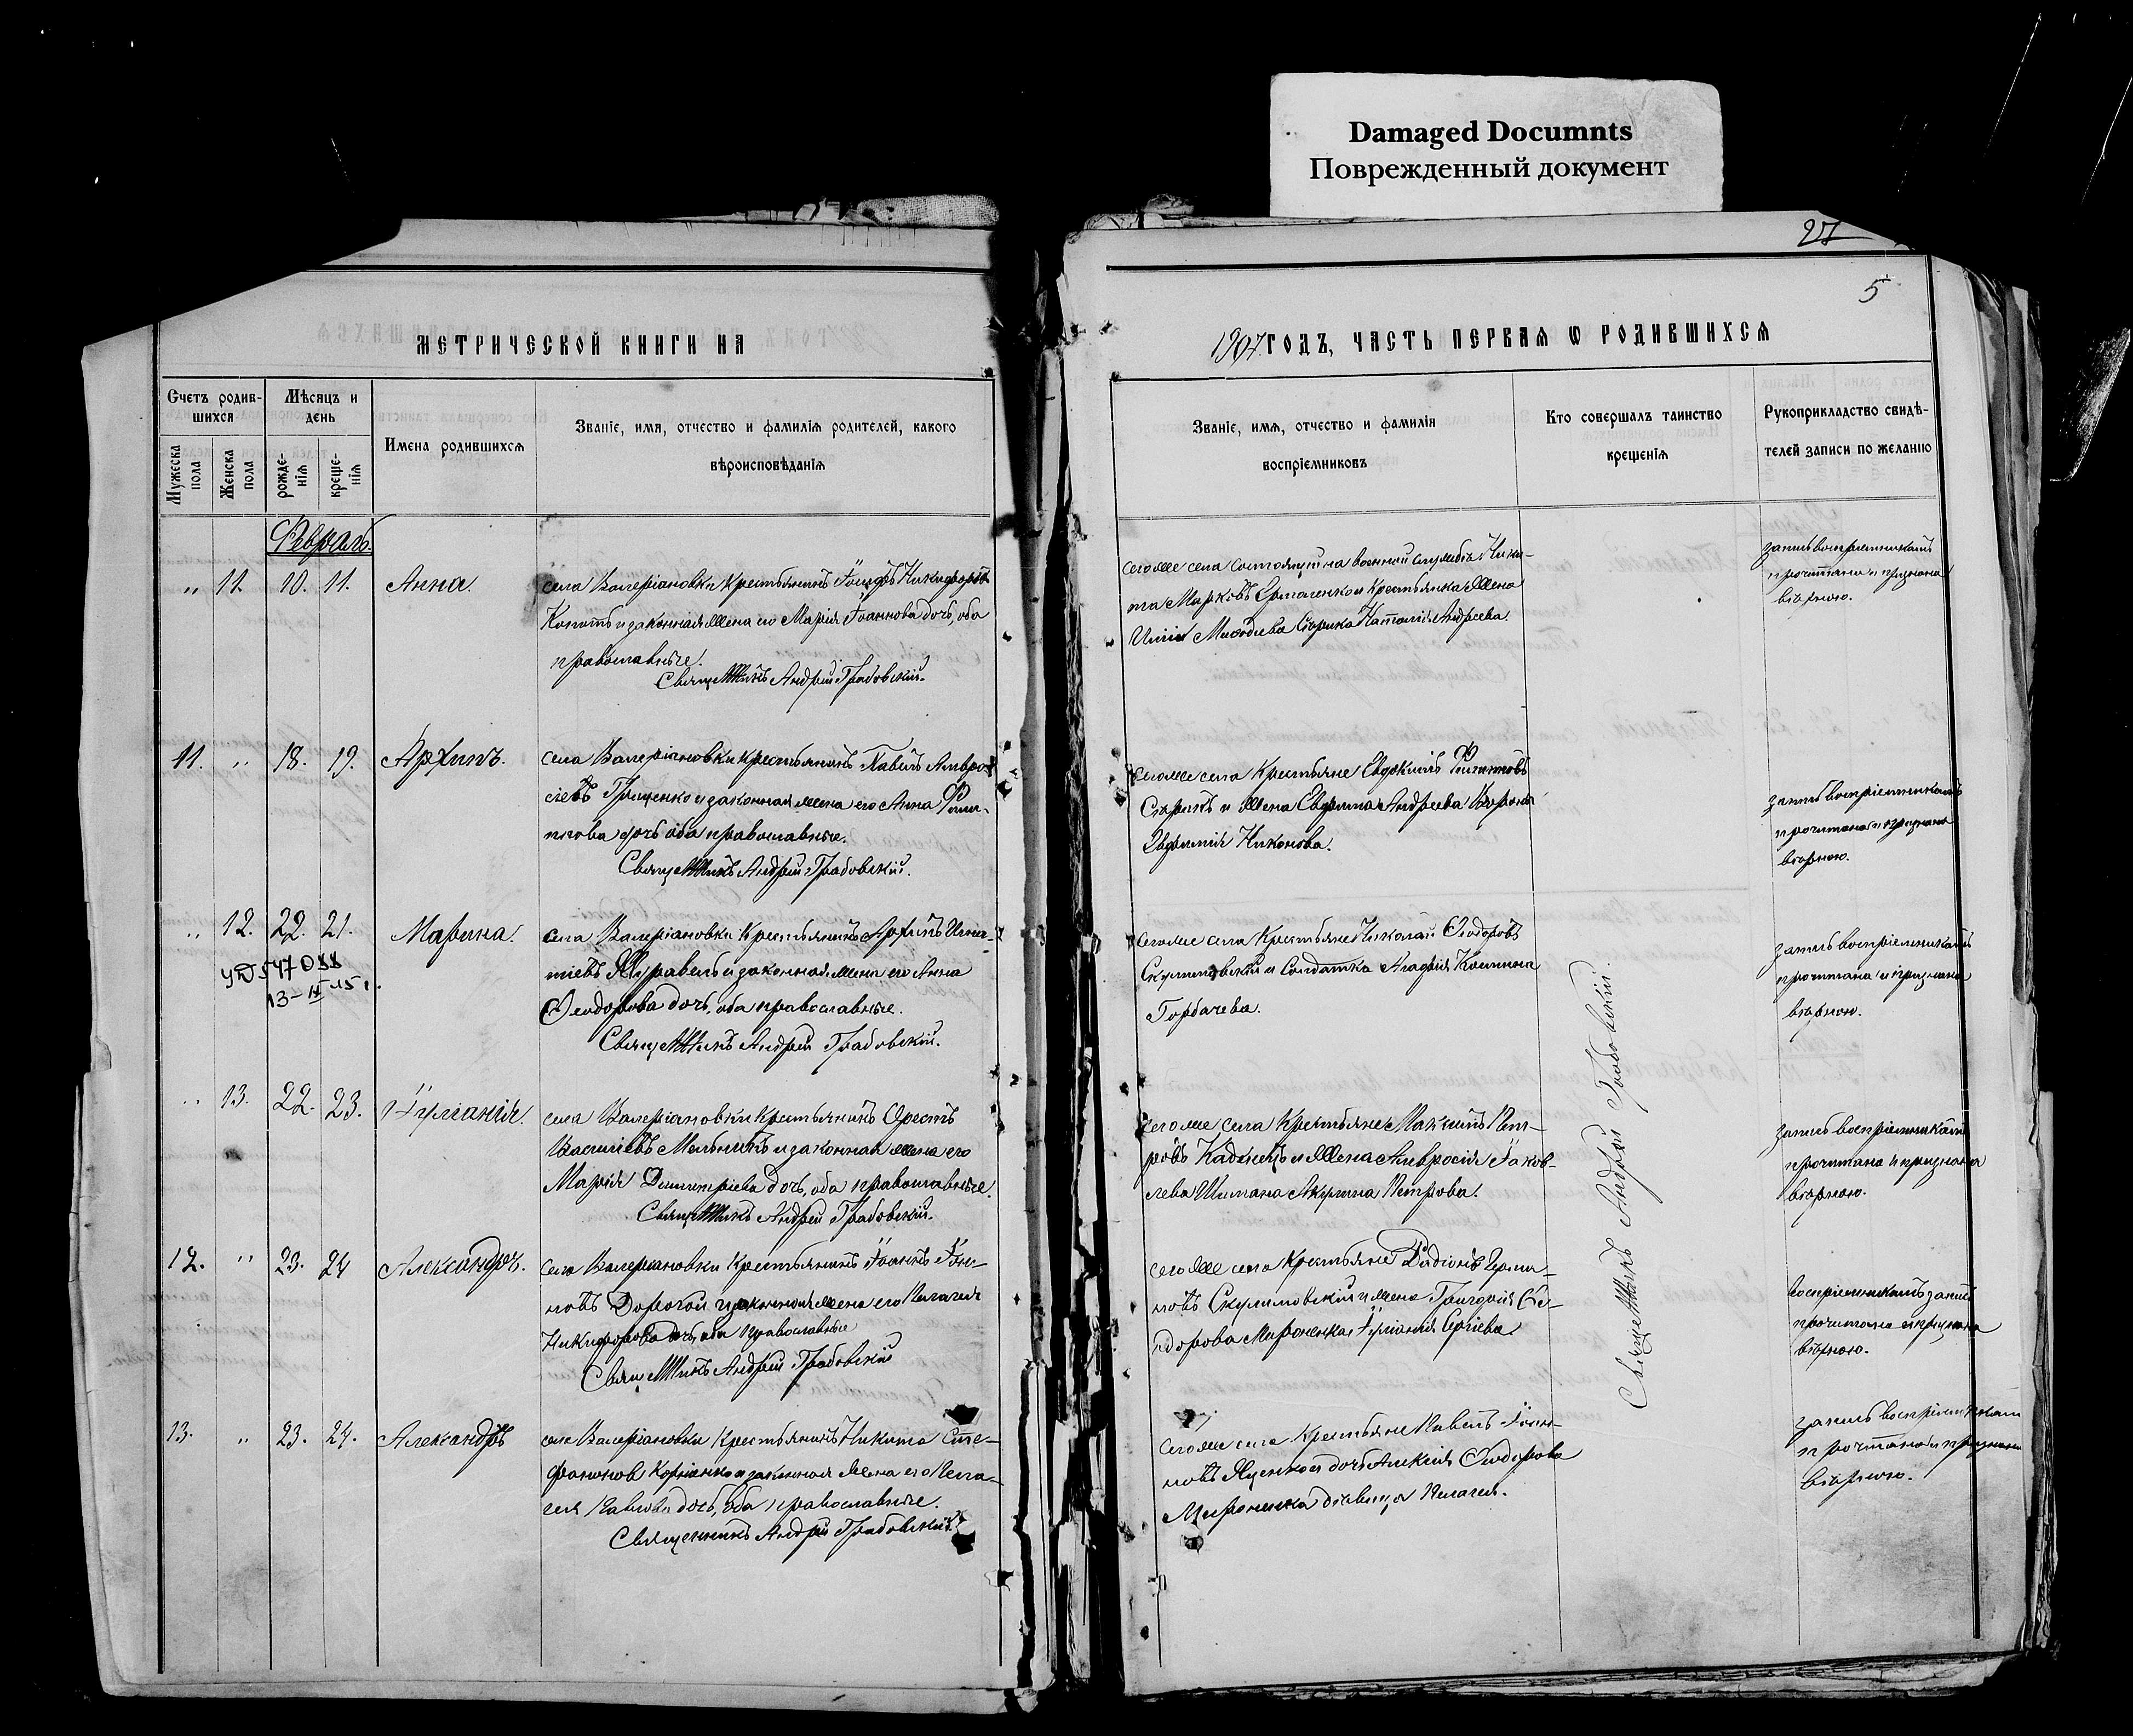 Damaged Documnts
Поврежденный документ
27
5
МЕТРИЧЕСКОЙ КНИГИ НА
1907 ГОДЪ, ЧАСТЬ ПЕРВАЯ Ѡ РОДИВШИХСЯ
Счетъ родив-
шихся
Мужеска
пола
Женска
пола
Мѣсяцъ и
день
рожде-
нія
креще-
нія
Имена родившихся
Званіе, имя, отчество и фамилія родителей, какого
вѣроисповѣданія
Званіе, имя, отчество и фамилія
воспріемниковъ
Кто совершалъ таинство
крещенія
Рукоприкладство свидѣ-
телей записи по желанію
Февраль
„ 11. 10. 11. Анна.
села Валеріановки крестьянинъ Никифоровъ
и законная жена его Марія Іоаннова дочь, оба
православные.
Священникъ Андрей Грабовскій.
сего же села состоящій на военной службѣ Ники-
та Марковъ Ермоленко и крестьянка жена
Андреева.
запись воспріемникамъ
прочитана и признана
вѣрною.
11. „ 18. 19. Архипъ.
села Валеріановки крестьянинъ Павелъ Амвро-
сіевъ Грищенко и законная жена его Анна Филип-
пова дочь оба православные.
Священникъ Андрей Грабовскій.
сего же села крестьяне Евдокимъ Филипповъ
Старикъ и жена Андреева
Евфимія Никонова.
запись воспріемникамъ
прочитана и признана
вѣрною.
„ 12. 22. 21. Марина.
13-IV-15 г.
села Валеріановки крестьянинъ Архипъ Игна-
тіевъ Журавель и законная жена его Анна
Ѳеодорова дочь, оба православные.
Священникъ Андрей Грабовскій.
сего же села крестьяне Николай Ѳеодоровъ
Скулимовскій и солдатка
Горбачева.
запись воспріемникамъ
прочитана и признана
вѣрною.
„ 13. 22. 23. Іуліанія.
села Валеріановки крестьянинъ Орестъ
Васильевъ Мельникъ и законная жена его
Марія Димитріева дочь, оба православные.
Священникъ Андрей Грабовскій.
сего же села крестьяне Максимъ Пет-
ровъ и жена Амвросія Іаков-
лева Акулина Петрова.
запись воспріемникамъ
прочитана и признана
вѣрною.
12. „ 23. 24 Александръ.
села Валеріановки крестьянинъ Іоаннъ Іоан-
новъ Дорогой и законная жена его Пелагея
Никифорова дочь, оба православные
Священникъ Андрей Грабовскій
сего же села крестьяне Родіонъ
новъ Скулимовскій и жена Григорія Си-
дорова Іуліанія Сергіева.
воспріемникамъ запись
прочитана и признана
вѣрною.
13. „ 23. 24. Александръ
села Валеріановки крестьянинъ Никита Сте-
фановъ Корніенко и законная жена его Пела-
гея Павлова дочь, оба православные.
Священникъ Андрей Грабовскій.
сего же села крестьяне Павелъ Іоан-
новъ Яценко и дочь Алексія Ѳеодорова
Мироненка дѣвица Пелагея.
запись воспріемникамъ
прочитана и признана
вѣрною.
Священникъ Андрей Грабовскій.